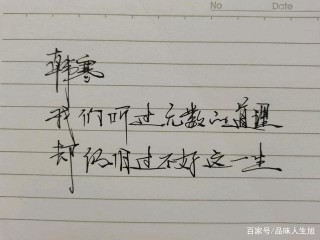 No Date
韩寒
我们听过无数的道理
却仍旧过不好这一生
百家号/品味人生旭